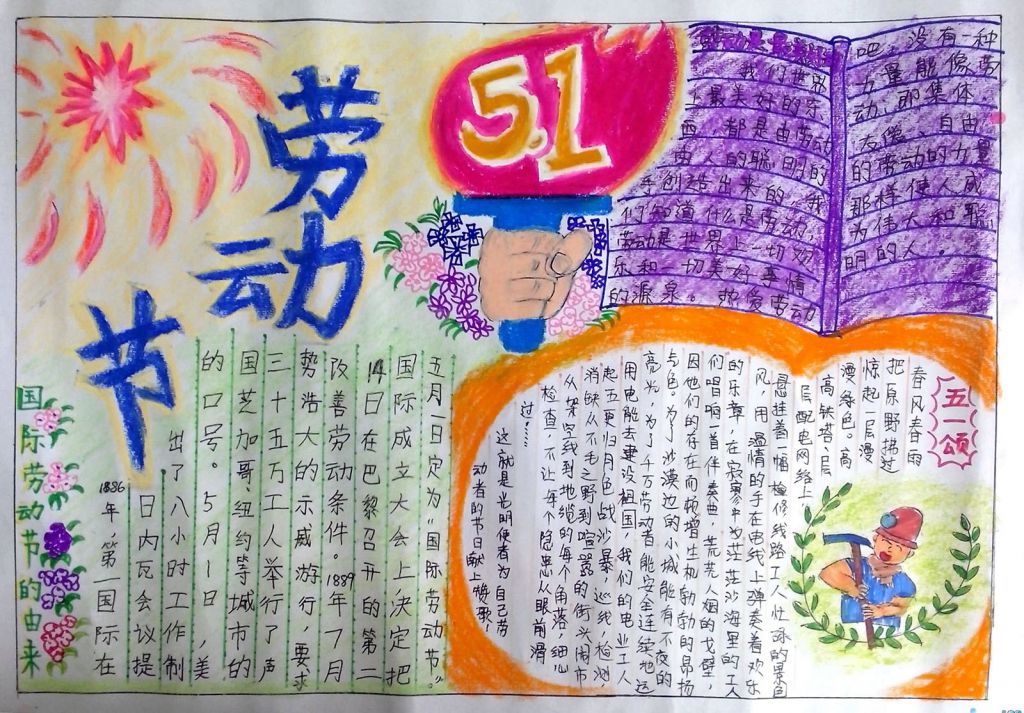 劳动节
5.1
国际劳动节的由来
1886年,第一国际在
日内瓦会议提
出了八小时工作制
的口号。5月1日,美
国芝加哥、纽约等城市的
三十五万工人举行了声
势浩大的示威游行 要求
改善劳动条件。1889年7月
14日在巴黎召开的第二
国际成立大会上,决定把
五月一日定为“国际劳动节”。
劳动是最
我们世界
上最美好的东
西,都是由劳动
由人的聪明的
手创造出来的。我
们知道什么是劳动,
劳动是世界上一切欢
乐和一切美好事情
的源泉。热爱劳动
吧,没有一种
力量能像劳
动,即集体、
友偎、自由
的劳动的力量
那样使人成
为伟大和聪
明的人。
五一颂
春风春雨
把原野拂过
惊起一层漫
漫绿色。高
高铁塔,层
层配电网络上
悬挂着一幅 检修线路工人忙碌的景色
风,用 温情的手在电线上弹奏着欢乐
的乐章 在寂寥中为茫茫沙海里的工人
们唱响一首伴奏曲,荒芜人烟的戈壁,
因他们的存在而顿增生机勃勃的昂扬
气色。为了沙漠边的小城能有不夜的
亮光,为了千万劳动者能安全连续地运
用电能去建设祖国,我们的电业工人
起五更归月色战沙暴,巡线,检测,
消缺从不毛之野到喧嚣的街头闹市
从架空线到地缆的每个角落,细心
检查,不让每个隐患从眼前滑
过……
这就是光明使者为自己劳
动者的节日献上赞歌!